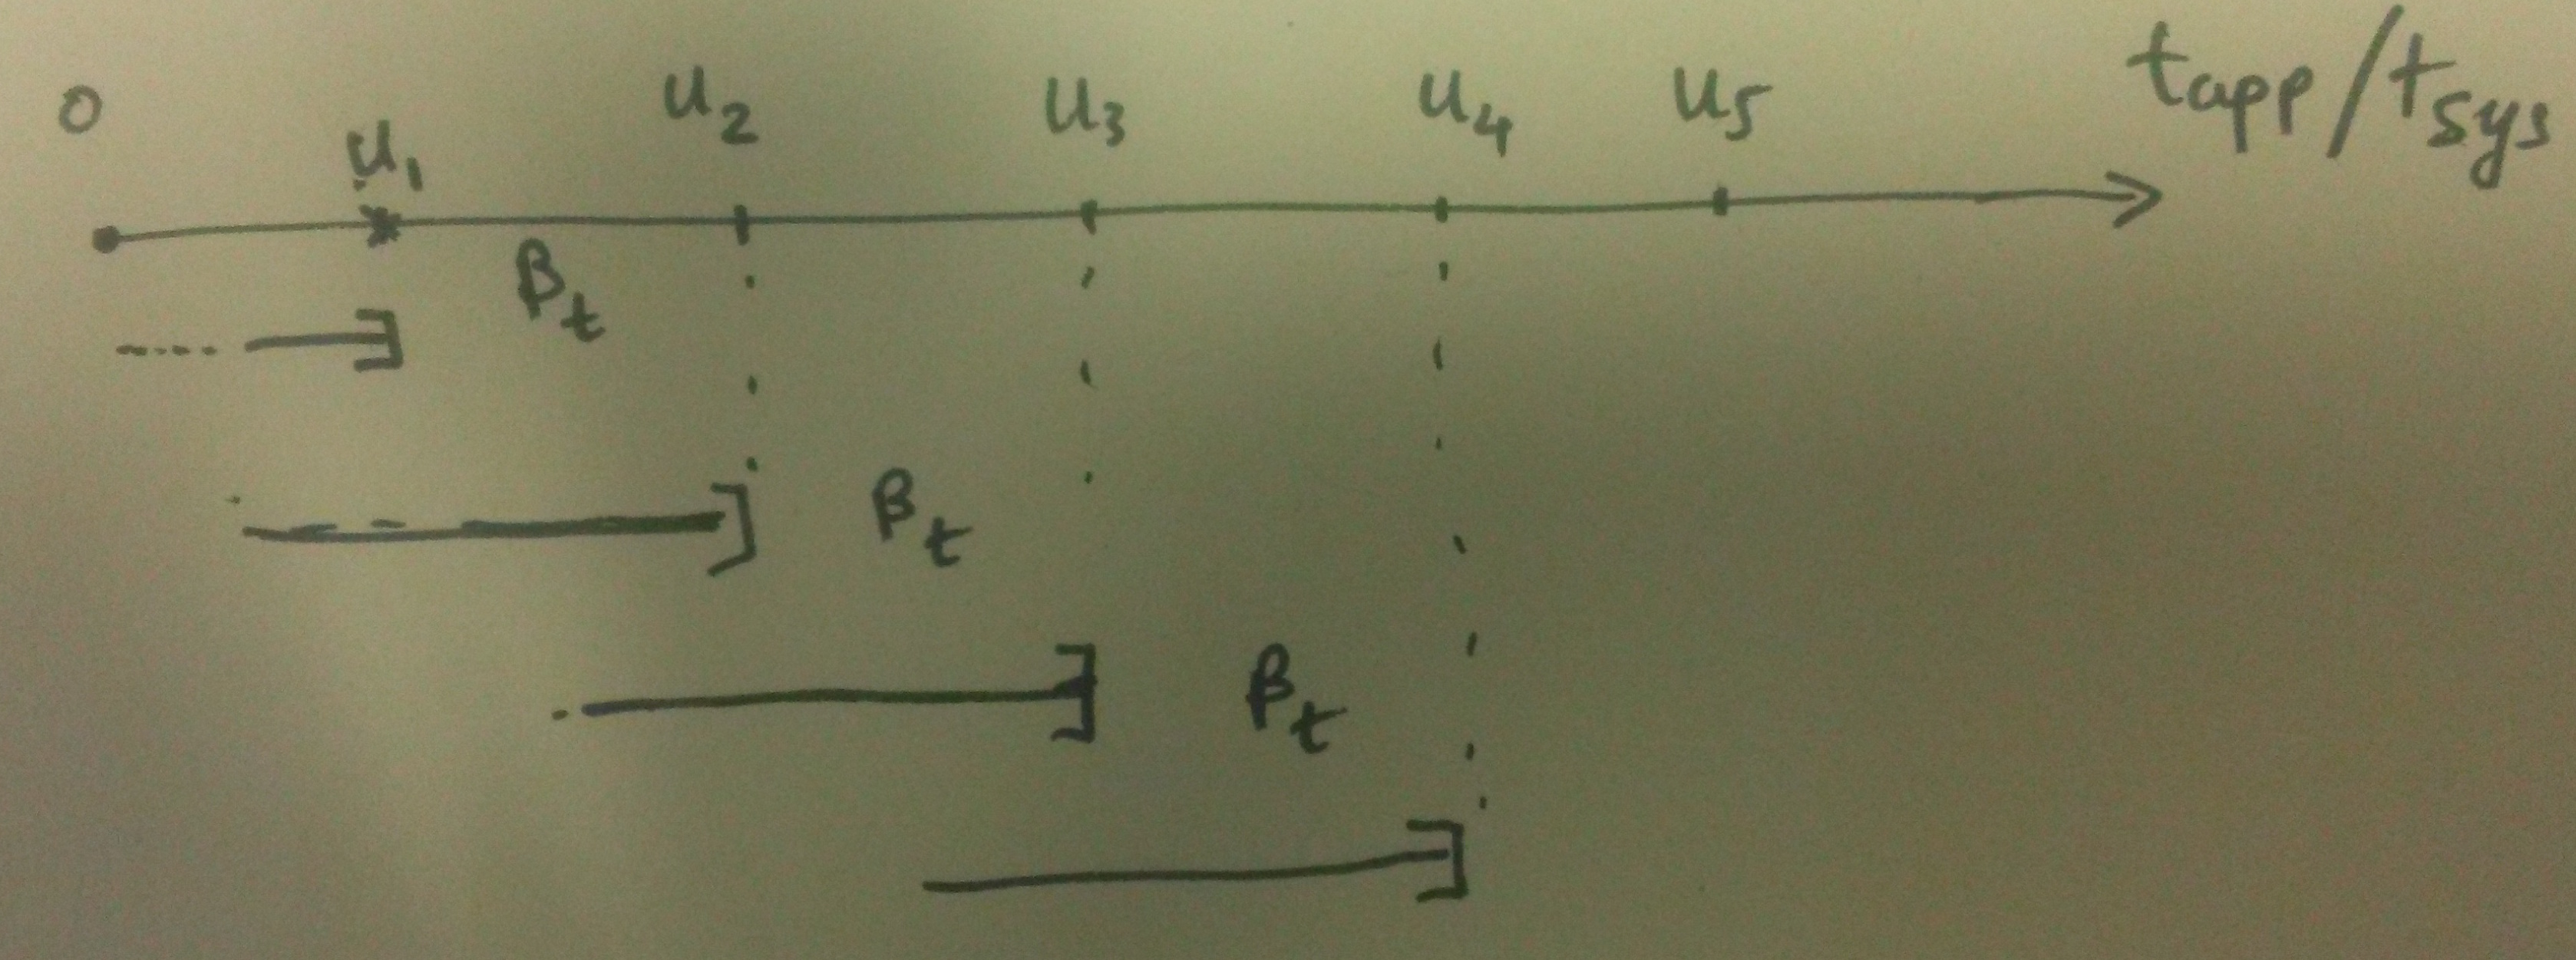 0 u₁ u₂ u₃ u₄ u₅ tapp/tsys
βt
βt
βt